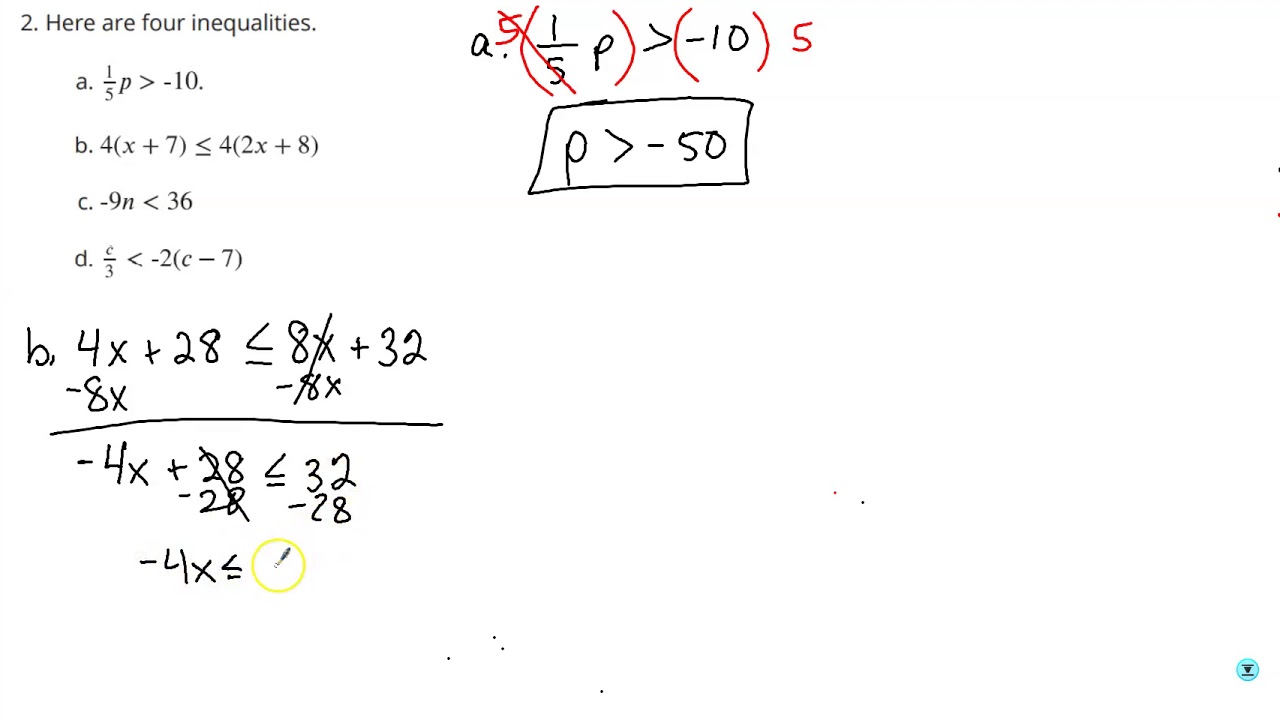 2. Here are four inequalities.
a. 1/5 p > -10.
b. 4(x + 7) ≤ 4(2x + 8)
c. -9n < 36
d. c/3 < -2(c − 7)
a. 5(1/5 p) > (-10) 5
p > -50
b. 4x + 28 ≤ 8x + 32
-8x -8x
-4x + 28 ≤ 32
-28 -28
-4x ≤